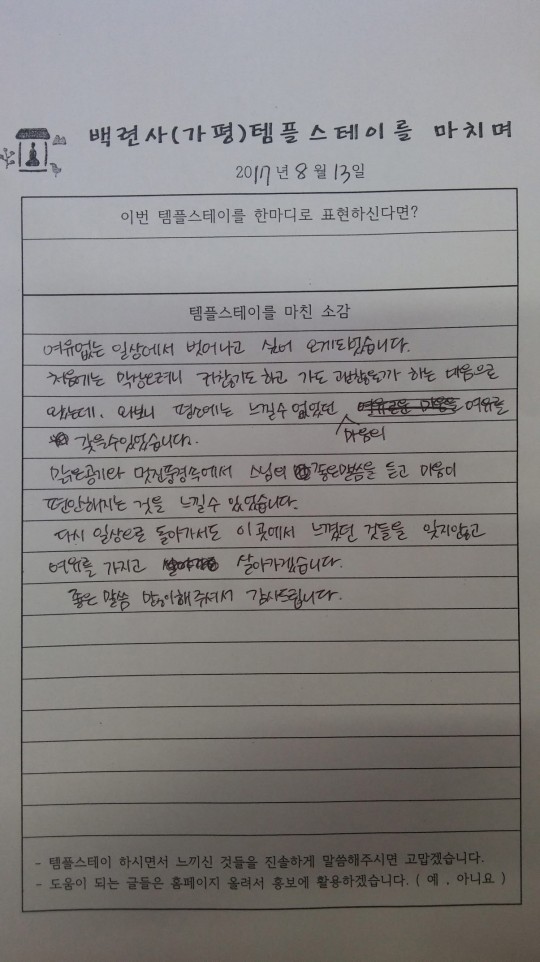 백련사(가평)템플스테이를 마치며
2017년 8월 13일
이번 템플스테이를 한마디로 표현하신다면?
템플스테이를 마친 소감
여유없는 일상에서 벗어나고 싶어 오게되었습니다.
처음에는 막상오려니 귀찮기도하고 가도 괜찮을까 하는 마음으로
왔는데, 와보니 평소에는 느낄수 없었던 마음의 여유를
갖을수있었습니다.
맑은공기와 멋진풍경속에서 스님의 좋은말씀을 듣고 마음이
편안해지는 것을 느낄수 있었습니다.
다시 일상으로 돌아가서도 이 곳에서 느꼈던 것들을 잊지않고
여유를 가지고 살아가겠습니다.
좋은 말씀 많이해주셔서 감사드립니다.
- 템플스테이 하시면서 느끼신 것들을 진솔하게 말씀해주시면 고맙겠습니다.
- 도움이 되는 글들은 홈페이지 올려서 홍보에 활용하겠습니다. ( 예 , 아니요 )